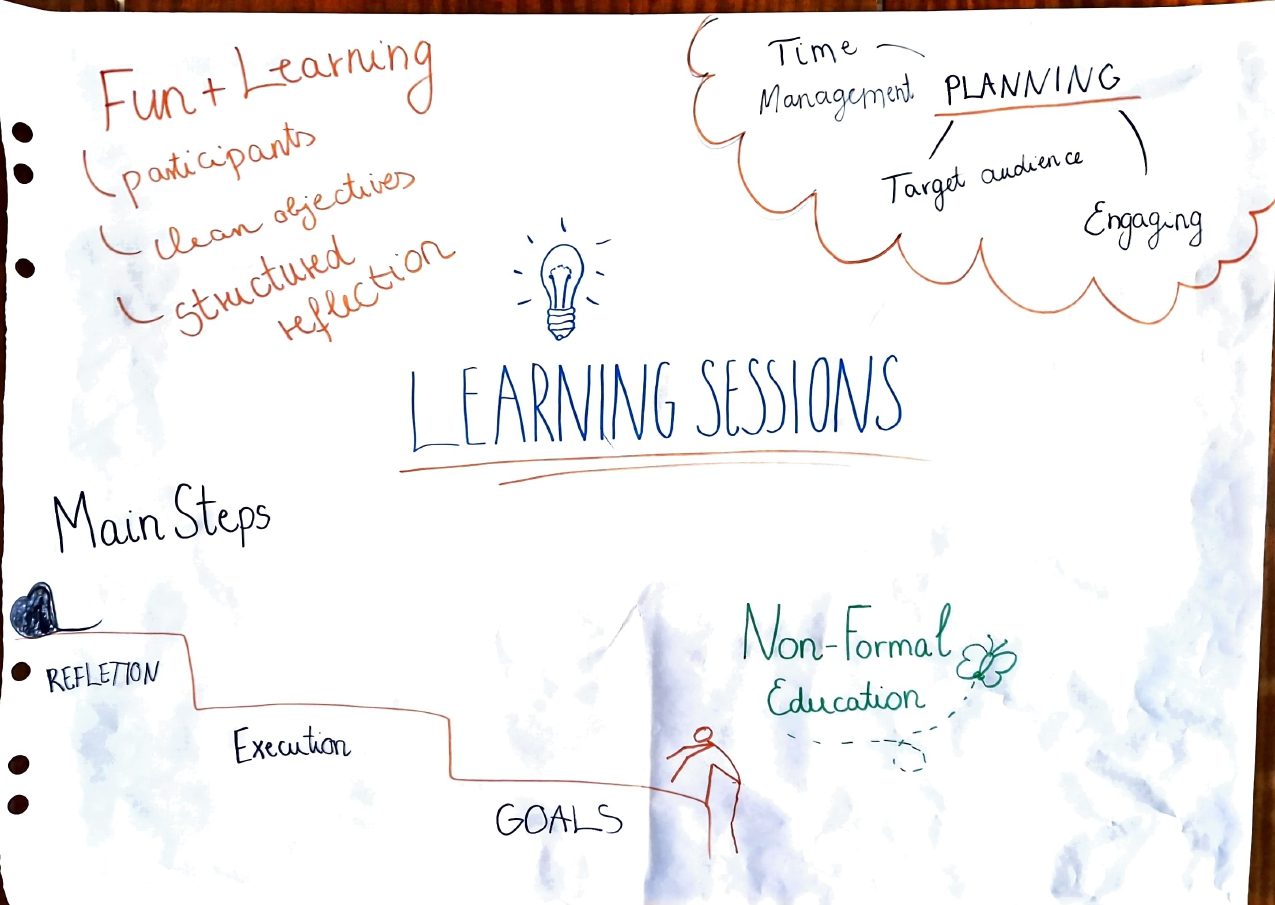 Fun + Learning
participants
clear objectives
structured
reflection
Time
Management
PLANNING
Target audience
Engaging
LEARNING SESSIONS
Main Steps
REFLETION
Execution
GOALS
Non-Formal
Education